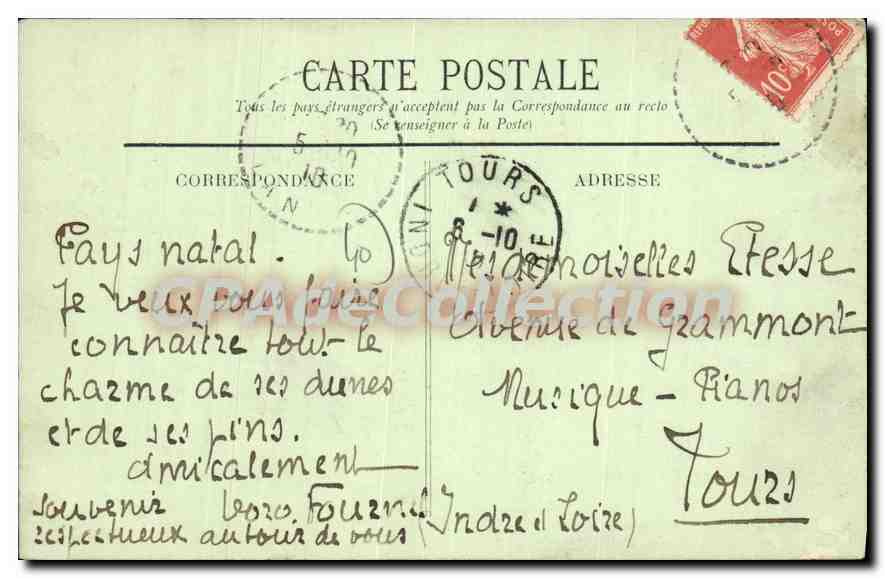 CARTE POSTALE
Tous les pays étrangers n'acceptent pas la Correspondance au recto
(Se renseigner à la Poste)
CORRESPONDANCE
ADRESSE
10c
TOURS
6 -10
40
Pays natal.
Je veux vous faire
connaître tout le
charme de ses dunes
et de ses pins.
Amicalement
Fournel
souvenir
respectueux autour de vous
Mesdemoiselles Etesse
Avenue de Grammont
Musique - Pianos
Tours
(Indre et Loire)
CPAdeCollection